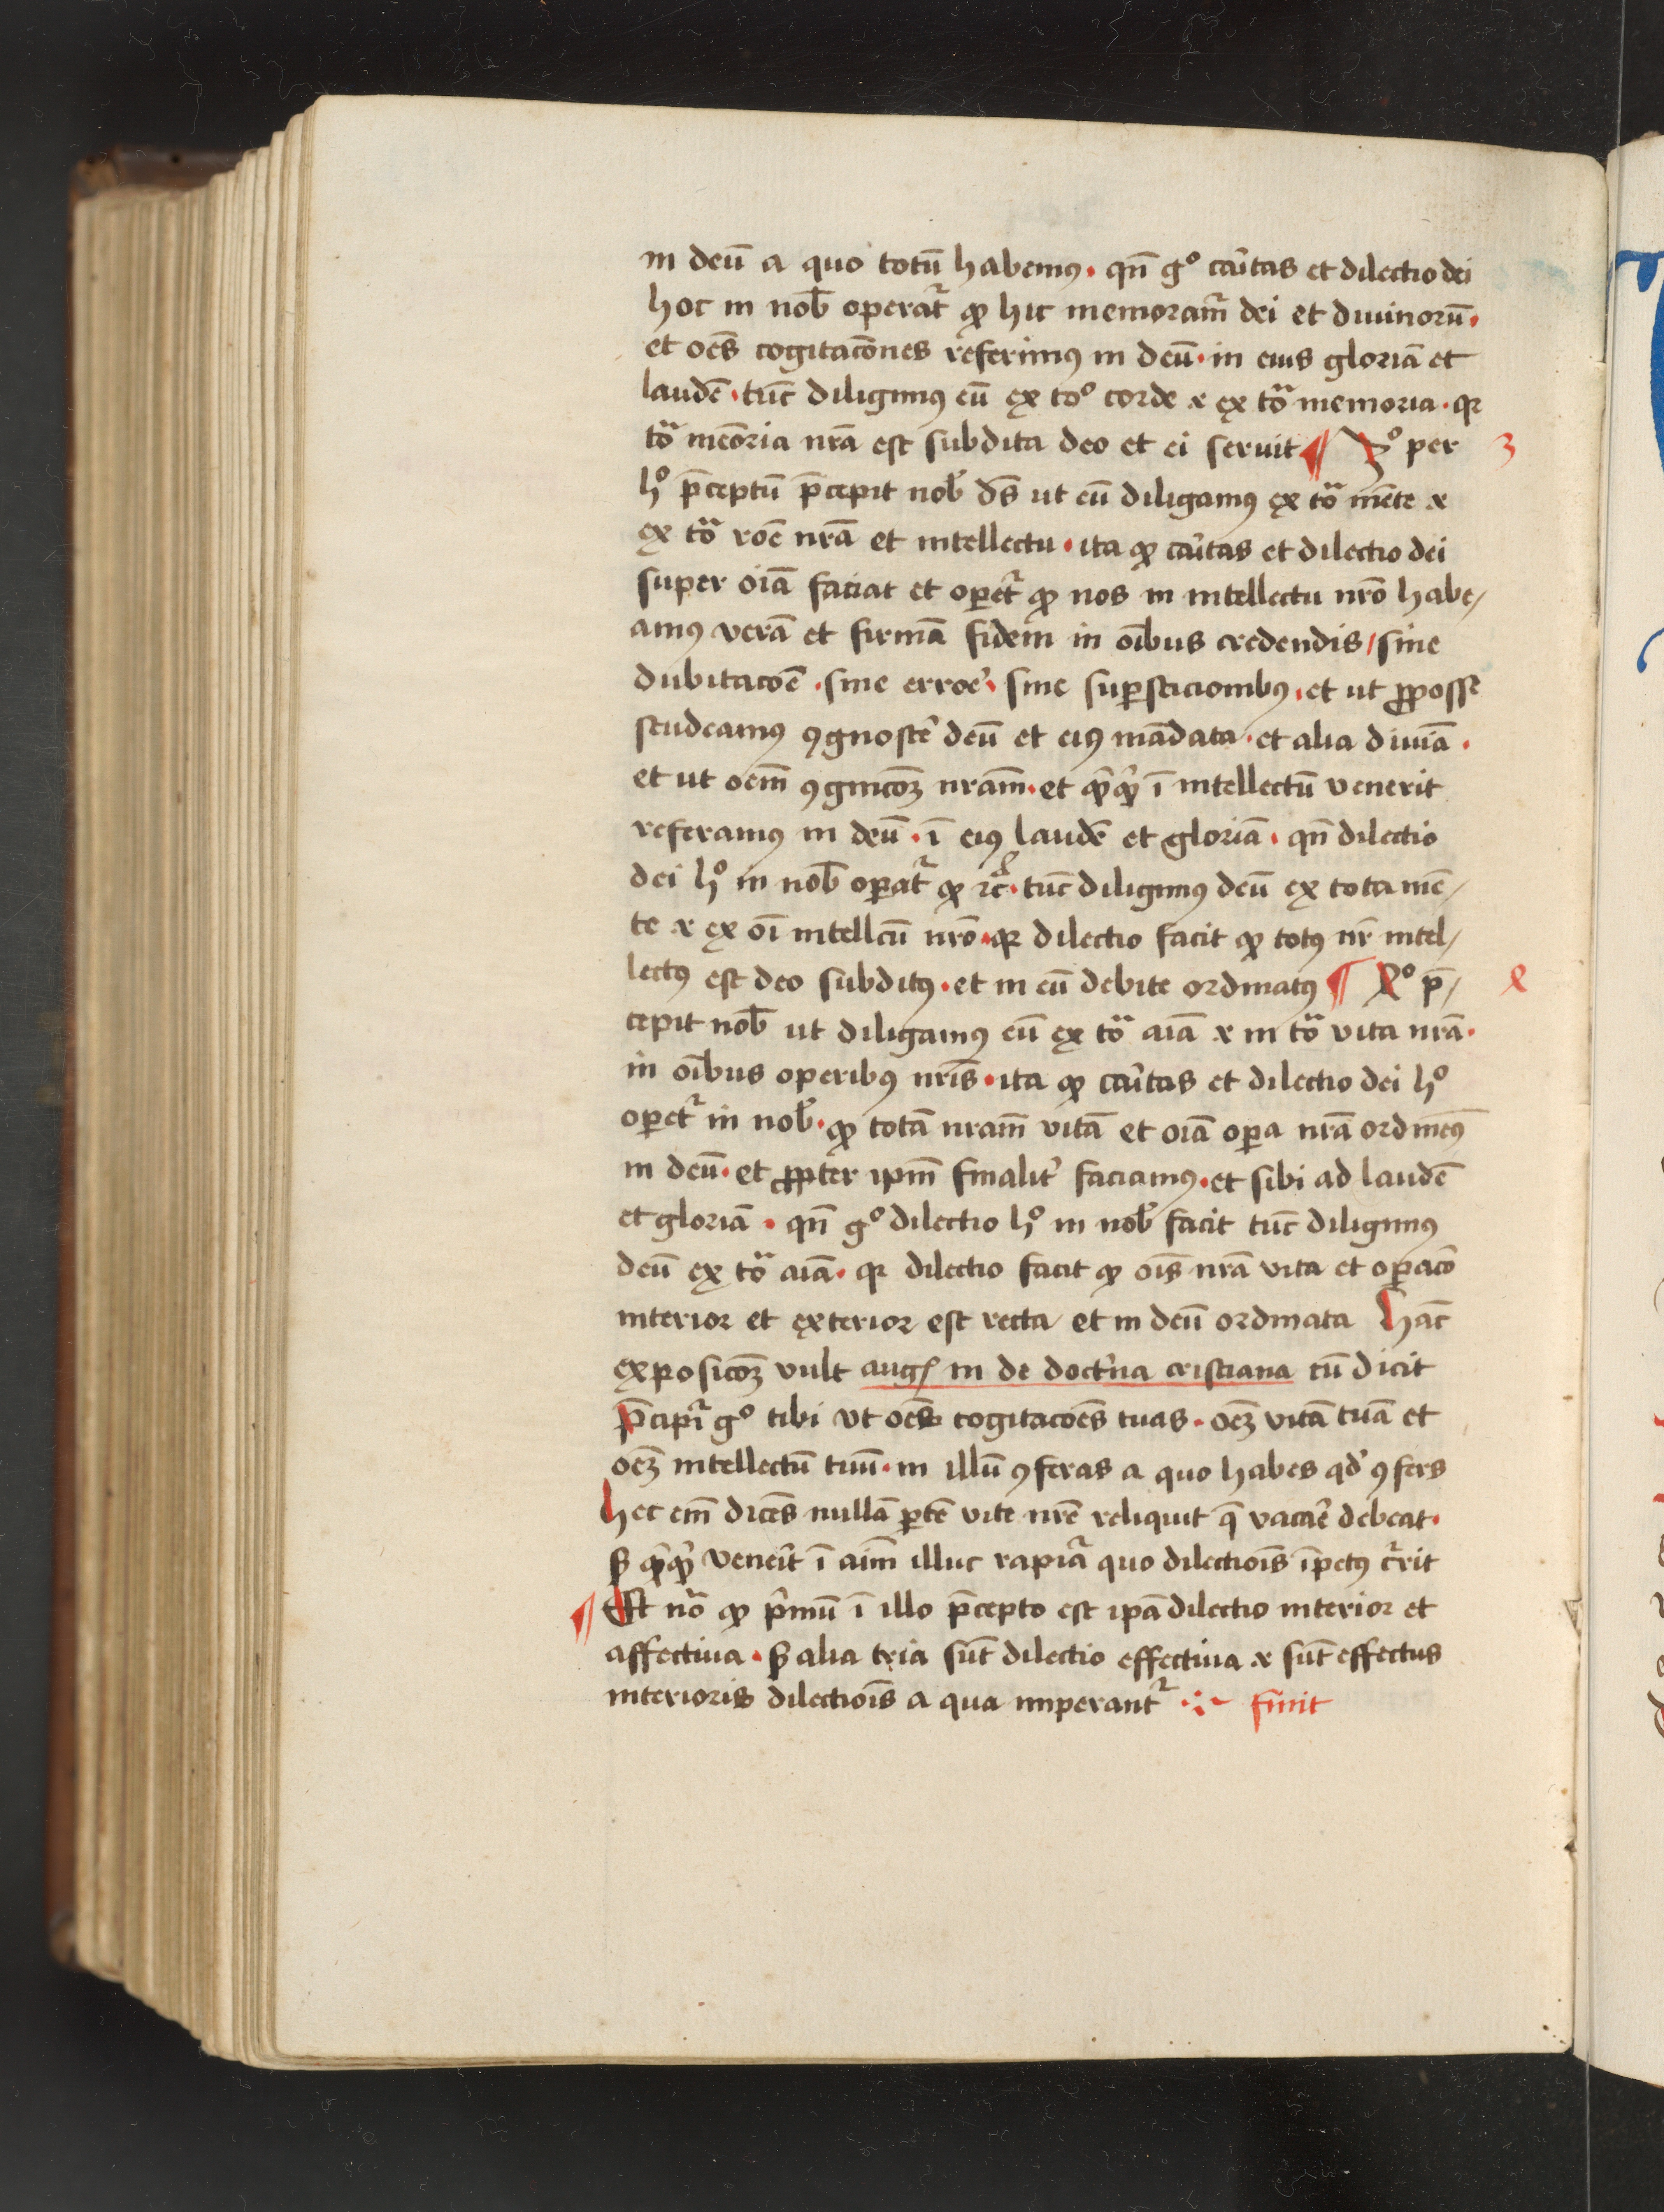 in deū a quo totū habemꝰ · qn̄ gͦ cāitas et dilectio dei
hoc in nob̄ operat᷑ ꝙ hic memoram̄ dei et diuinorū ·
et oēs cogitacōnes referimꝰ in deū · in eius gloriā et
laudē · tūc diligimꝰ eū ex toͦ corde ⁊ ex tōͣ memoria · qꝛ
tōͣ memōria nr̄a est subdita deo et ei seruit ¶ 3ͦ per 3
hͦ p̄ceptū p̄cepit nob̄ dn̄s ut eū diligamꝰ ex tōͣ mēte ⁊
ex tōͣ rōe nr̄a et intellectu · ita ꝙ cāitas et dilectio dei
super oīa faciat et oꝑet᷑ ꝙ nos in intellectu nr̄o habe/
amꝰ verā et firmā fidem in oībus credendis / sine
dubitacōe · sine erroe᷑ · sine suꝑsticionibꝰ · et ut ꝓposse
studeamꝰ ꝯgnosce᷑ deū et eiꝰ mādata · et alia diuīa ·
et ut oēm ꝯgnicōꝫ nr̄am · et qͥcqͥd ī intellectū venerit
referamꝰ in deū · ī eiꝰ laudē et gloriā · qn̄ dilectio
dei hͦ in nob̄ oꝑat᷑ ꝙ ⁊c̄ · tūc diligimꝰ deū ex tota mē/
te ⁊ ex oī intellcū nr̄o · qꝛ dilectio facit ꝙ totꝰ nr̄ intel/
lectꝰ est deo subditꝰ · et in eū debite ordinatꝰ ¶ 4ͦ p̄/ 4
cepit nob̄ ut diligamꝰ eū ex tōͣ aīa ⁊ in tōͣ vita nr̄a ·
in oībus operibꝰ nr̄is · ita ꝙ cāitas et dilectio dei hͦ
oꝑet᷑ in nob̄ · ꝙ totā nr̄am vitā et oīa oꝑa nr̄a ordinēꝰ
in deū · et ꝓpter ip̄m finalit᷑ faciamꝰ · et sibi ad laudē
et gloriā · qn̄ gͦ dilectio hͦ in nob̄ facit tūc diligimꝰ
deū ex tōͣ aīa · qꝛ dilectio facit ꝙ oīs nr̄a vita et oꝑacō
interior et exterior est recta et in deū ordinata Hāc
exposicōꝫ vult augꝰ in de doct᷑na cristiana cū dicit
P̄cipi᷑ gͦ tibi vt oēs cogitacōes tuas · oēꝫ vitā tuā et
oēꝫ intellectū tuū · in illū ꝯferas a quo habes qd̄ ꝯfers
Hec em̄ dicēs nullā ꝑtē vite nr̄e reliquit q̄ vacae᷑ debeat ·
sꝫ qͥcqͥd veneīt ī aīm illuc rapiat᷑ quo dilectiōis īpetꝰ c᷑rit
¶ Et nōͣ ꝙ pͥmū ī illo p̄cepto est ip̄a dilectio interior et
affectiua · sꝫ alia tria sūt dilectio effectiua ⁊ sūt effectus
interioris dilectiōis a qua imperant᷑ ·:~ finit